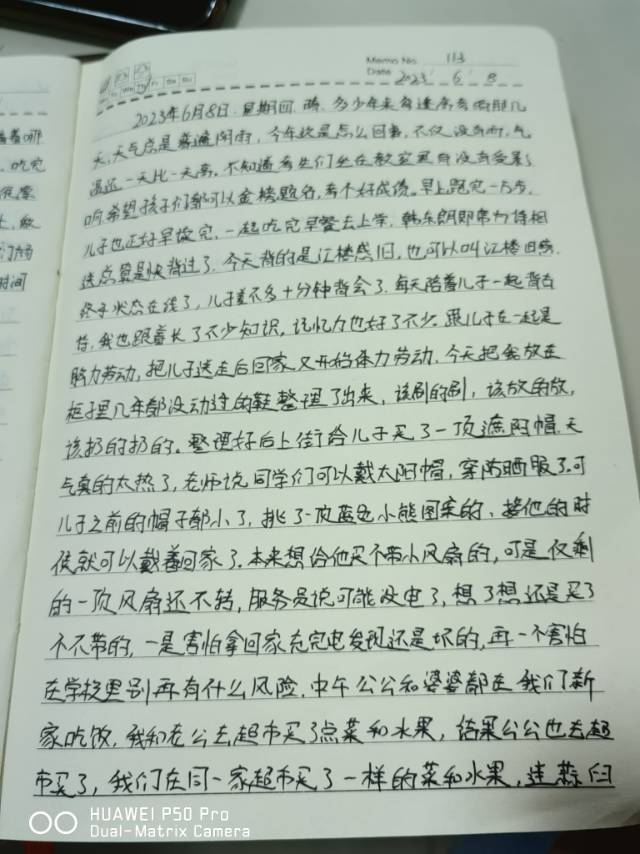 Memo No. 113
Date 2023 6 8
2023年6月8日 星期四 晴 多少年来每逢高考都那几
天,天气总是普遍阴雨,今年这是怎么回事,不仅没有雨,气
温还一天比一天高。不知道考生们坐在教室里有没有受影
响,希望孩子们都可以金榜题名,考个好成绩。早上跑完一万步,
儿子也正好早读完,一起吃完早餐去上学,韩东朗即席为
送总算是快背过了,今天背的是江楼感旧,也可以叫江楼旧感,
终于状态在线了,儿子差不多十分钟背会了。每天陪着儿子一起背古
诗,我也跟着长了不少知识,记忆力也好了不少。跟儿子在一起是
脑力劳动,把儿子送走后回家又开始体力劳动,今天把我放在
柜子里几年都没动过的鞋整理了出来,该刷的刷,该放的放,
该扔的扔的。整理好后上街给儿子买了一顶遮阳帽,天
气真的太热了,老师说同学们可以戴太阳帽,穿防晒服了。可
儿子之前的帽子都小了,挑了一顶蓝色小熊图案的,接他的时
候就可以戴着回家了。本来想给他买个带小风扇的,可是仅剩
的一顶风扇还不转,服务员说可能没电了,想了想还是买了
个不带的,一是害怕拿回家充完电发现还是坏的,再一个害怕
在学校里别再有什么风险。中午公公和婆婆都在我们新
家吃饭,我和老公去超市买了点菜和水果,结果公公也去超
市买了,我们在同一家超市买了一样的菜和水果,连蒜
HUAWEI P50 Pro
Dual-Matrix Camera